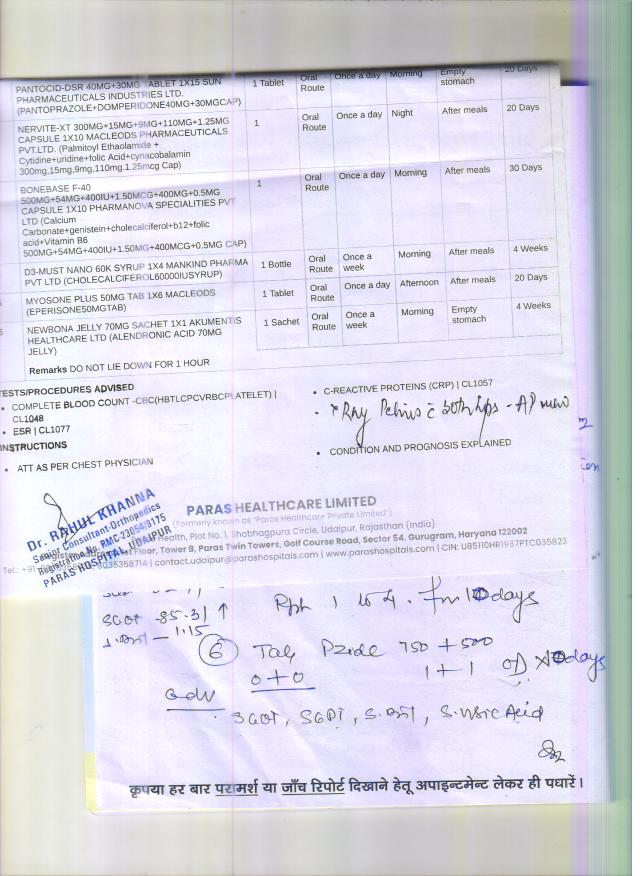 PANTOCID-DSR 40MG+30MG TABLET 1X15 SUN
PHARMACEUTICALS INDUSTRIES LTD.
(PANTOPRAZOLE+DOMPERIDONE40MG+30MGCAP)
1 Tablet
Oral
Route
Once a day
Morning
Empty
stomach
20 Days
NERVITE-XT 300MG+15MG+9MG+110MG+1.25MG
CAPSULE 1X10 MACLEODS PHARMACEUTICALS
PVT.LTD. (Palmitoyl Ethaolamide +
Cytidine+uridine+folic Acid+cynacobalamin
300mg,15mg,9mg,110mg.1.25mcg Cap)
1
Oral
Route
Once a day
Night
After meals
20 Days
BONEBASE F-40
500MG+54MG+400IU+1.50MCG+400MG+0.5MG
CAPSULE 1X10 PHARMANOVA SPECIALITIES PVT
LTD (Calcium
Carbonate+genistein+cholecalciferol+b12+folic
acid+Vitamin B6
500MG+54MG+400IU+1.50MG+400MCG+0.5MG CAP)
1
Oral
Route
Once a day
Morning
After meals
30 Days
D3-MUST NANO 60K SYRUP 1X4 MANKIND PHARMA
PVT LTD (CHOLECALCIFEROL60000IUSYRUP)
1 Bottle
Oral
Route
Once a
week
Morning
After meals
4 Weeks
MYOSONE PLUS 50MG TAB 1X6 MACLEODS
(EPERISONE50MGTAB)
1 Tablet
Oral
Route
Once a day
Afternoon
After meals
20 Days
NEWBONA JELLY 70MG SACHET 1X1 AKUMENTIS
HEALTHCARE LTD (ALENDRONIC ACID 70MG
JELLY)
1 Sachet
Oral
Route
Once a
week
Morning
Empty
stomach
4 Weeks
Remarks DO NOT LIE DOWN FOR 1 HOUR
TESTS/PROCEDURES ADVISED
• COMPLETE BLOOD COUNT -CBC(HBTLCPCVRBCPLATELET) |
CL1048
• ESR | CL1077
• C-REACTIVE PROTEINS (CRP) | CL1057
• XRay Pelvis c both hips - AP view
INSTRUCTIONS
• ATT AS PER CHEST PHYSICIAN
• CONDITION AND PROGNOSIS EXPLAINED
Dr. RAHUL KHANNA
Senior Consultant-Orthopedics
Registration No. RMC-23054/9175
PARAS HOSPITAL, UDAIPUR
PARAS HEALTHCARE LIMITED
(Formerly known as "Paras Healthcare Private Limited")
Health, Plot No. 1, Shobhagpura Circle, Udaipur, Rajasthan (India)
Floor, Tower B, Paras Twin Towers, Golf Course Road, Sector 54, Gurugram, Haryana 122002
8035358714 | contact.udaipur@parashospitals.com | www.parashospitals.com | CIN: U85110HR1987PTC035823
SGOT - 85.31 ↑
S.Bil — 1.15
Rpt 1 to 4. for 10 days
6 Tab Pzide 750 + 500
0 + 0
1 + 1 OD x 10 days
Adv
SGOT, SGPT, S.Bil, S.Uric Acid
कृपया हर बार परामर्श या जाँच रिपोर्ट दिखाने हेतू अपाइन्टमेन्ट लेकर ही पधारें।